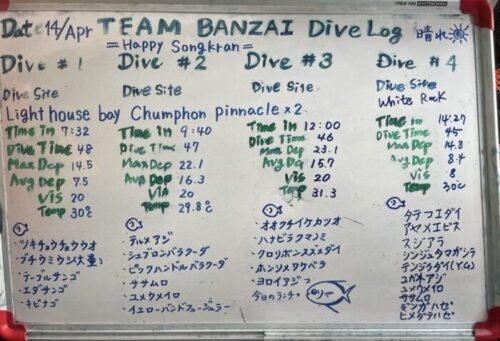 Date 14/Apr TEAM BANZAI Dive Log 晴れ
=Happy Songkran=
Dive #1
Dive Site
Light house bay
Time in 7:32
Dive Time 48
Max Dep 14.5
Avg Dep 7.5
Vis 20
Temp 30℃
・ツキチョウチョウウオ
・ブチウミウシ(大量)
・テーブルサンゴ
・エダサンゴ
・キビナゴ
Dive #2
Dive Site
Chumphon pinnacle ×2
Time in 9:40
Dive Time 47
Max Dep 22.1
Avg Dep 16.3
Vis 20
Temp 29.8℃
・テルメアジ
・シェブロンバラクーダ
・ピックハンドルバラクーダ
・ササムロ
・ユメウメイロ
・イエローバンドフュージュラー
Dive #3
Dive Site
Time in 12:00
Dive Time 46
Max Dep 23.1
Avg Dep 15.7
Vis 20
Temp 31.3
・オオクチイケカツオ
・ハナビラクマノミ
・クロリボンスズメダイ
・ホンソメワケベラ
・ヨロイアジ
今日のランチ
Dive #4
Dive Site
White Rock
Time in 14:27
Dive Time 45
Max Dep 14.8
Avg Dep 8.4
Vis 8
Temp 30℃
タテフエダイ
アヤメエビス
スジアラ
シンジュタマガシラ
テンジクダイ(Y.G)
ユカタアジ
ユメウメイロ
ササムロ
ギンガハゼ
ヒメダテハゼ